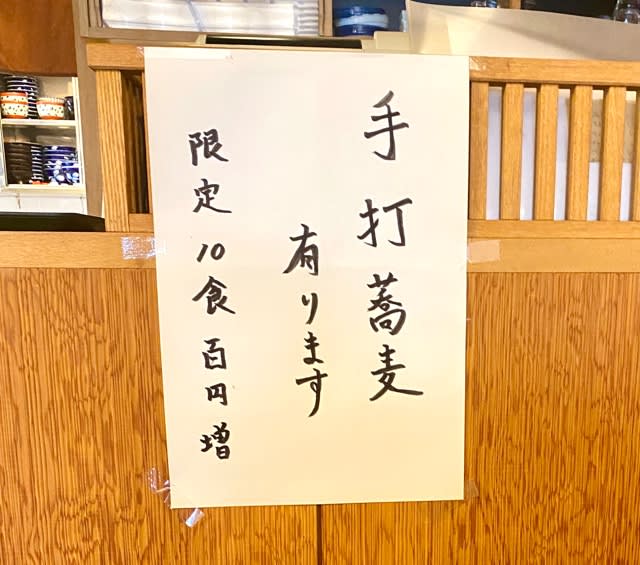 手打蕎麦
有ります
限定10食百円増